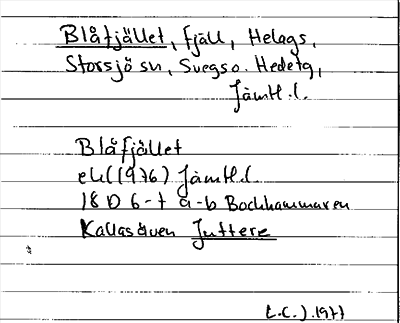 Blåfjället, fjäll, Helags,
Storsjö sn, Svegs o. Hedetg,
Jämtl.l.
Blåfjället
ek (1976) Jämtl.l.
18 D 6-7 a-b Bockhammaren
Kallas även Juttere
L.C.J. 1977